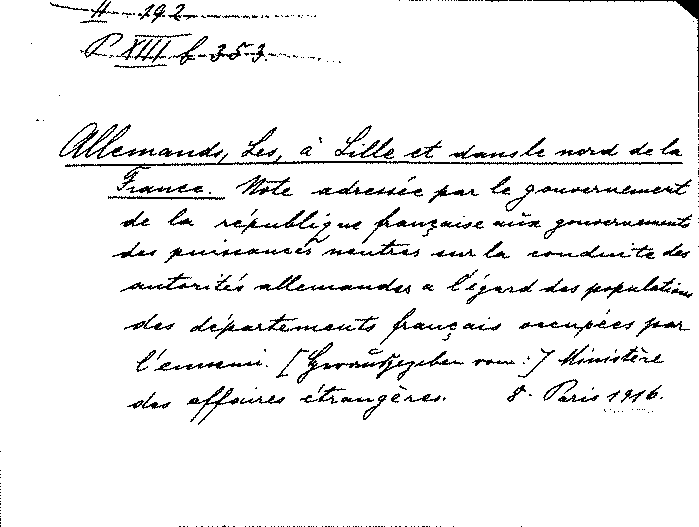 H 192
P XIII f 353.
Allemands, Les, à Lille et dans le nord de la
France. Note adressée par le gouvernement
de la république française aux gouvernements
des puissances neutres sur la conduite des
autorités allemandes a l'égard des populations
des départements français occupées par
l'ennemi. [Herausgegeben vom:] Ministère
des affaires étrangères. 8. Paris 1916.